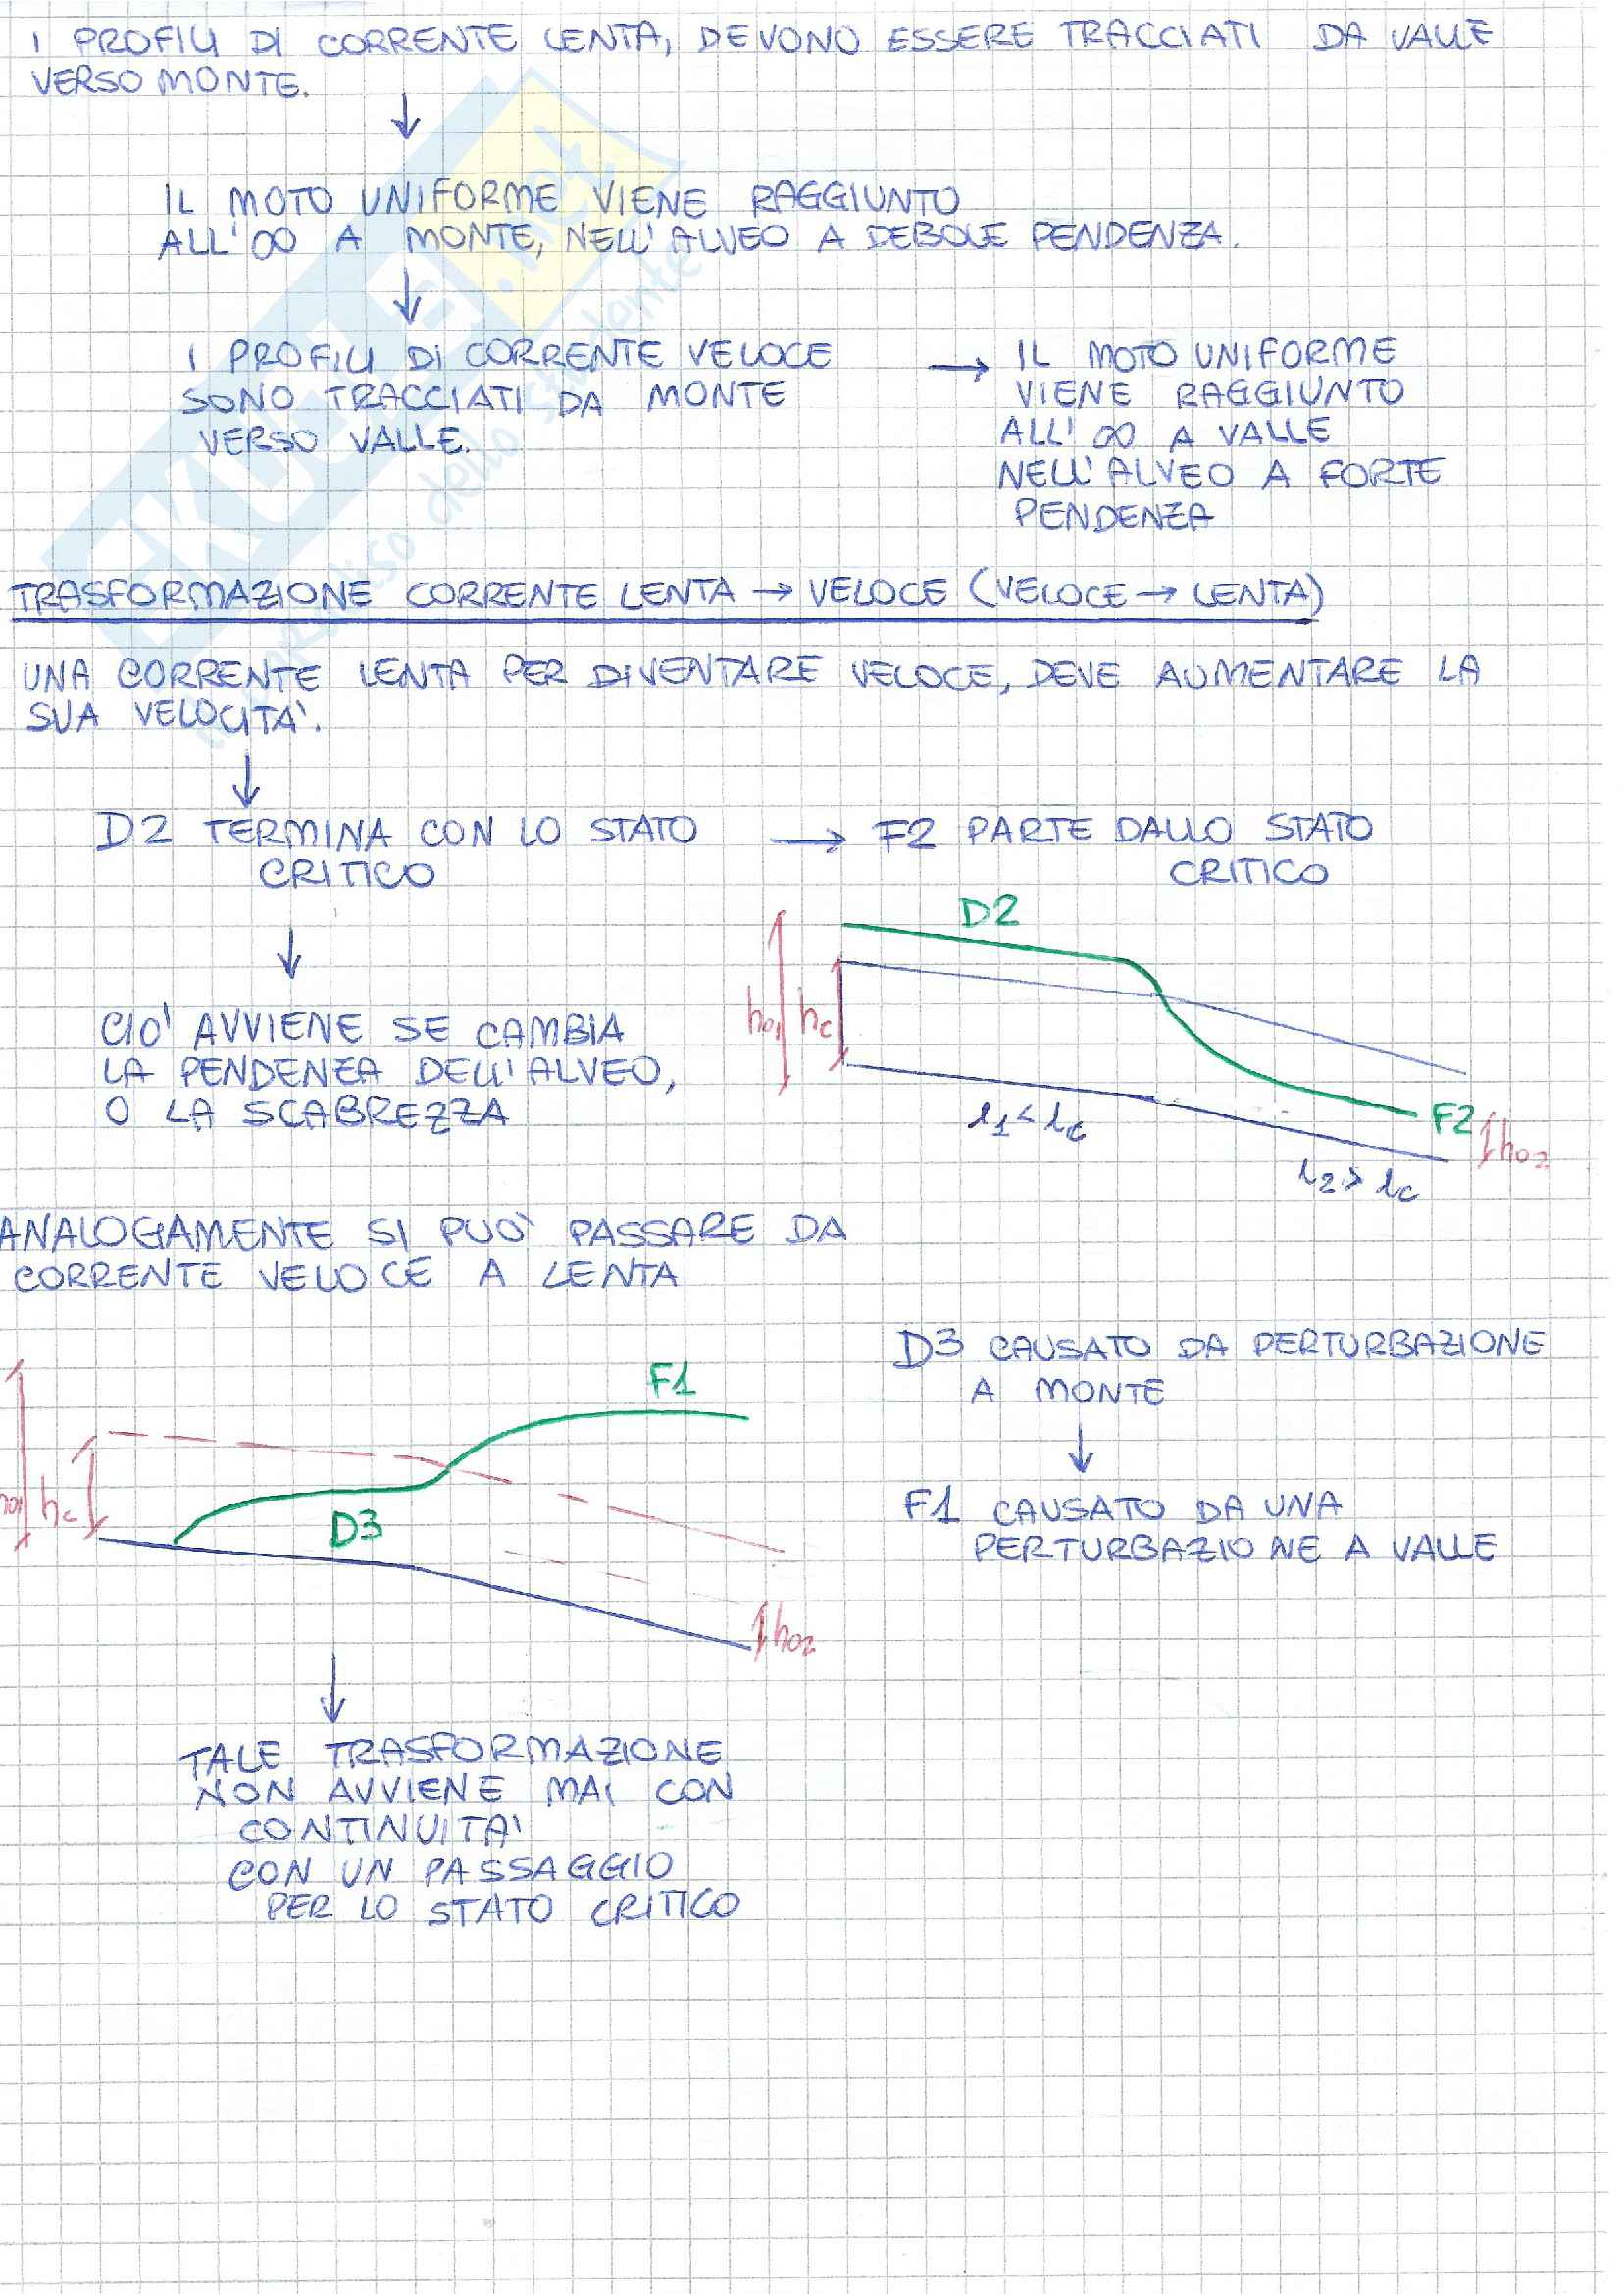 I PROFILI DI CORRENTE LENTA, DEVONO ESSERE TRACCIATI DA VALLE
VERSO MONTE.
↓
IL MOTO UNIFORME VIENE RAGGIUNTO
ALL'∞ A MONTE, NELL'ALVEO A DEBOLE PENDENZA.
↓
I PROFILI DI CORRENTE VELOCE
SONO TRACCIATI DA MONTE
VERSO VALLE.
→ IL MOTO UNIFORME
VIENE RAGGIUNTO
ALL'∞ A VALLE
NELL'ALVEO A FORTE
PENDENZA
TRASFORMAZIONE CORRENTE LENTA → VELOCE (VELOCE → LENTA)
UNA CORRENTE LENTA PER DIVENTARE VELOCE, DEVE AUMENTARE LA
SUA VELOCITA'.
↓
D2 TERMINA CON LO STATO
CRITICO
→ F2 PARTE DALLO STATO
CRITICO
↓
CIO' AVVIENE SE CAMBIA
LA PENDENZA DELL'ALVEO,
O LA SCABREZZA
D2
h01 hc
i1 < ic
F2
h02
i2 > ic
ANALOGAMENTE SI PUO' PASSARE DA
CORRENTE VELOCE A LENTA
F1
h01 hc
D3
h02
D3 CAUSATO DA PERTURBAZIONE
A MONTE
↓
F1 CAUSATO DA UNA
PERTURBAZIONE A VALLE
↓
TALE TRASFORMAZIONE
NON AVVIENE MAI CON
CONTINUITA'
CON UN PASSAGGIO
PER LO STATO CRITICO